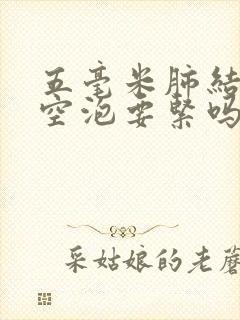 五毫米肺结
空泡要紧吗
采姑娘的老蘑